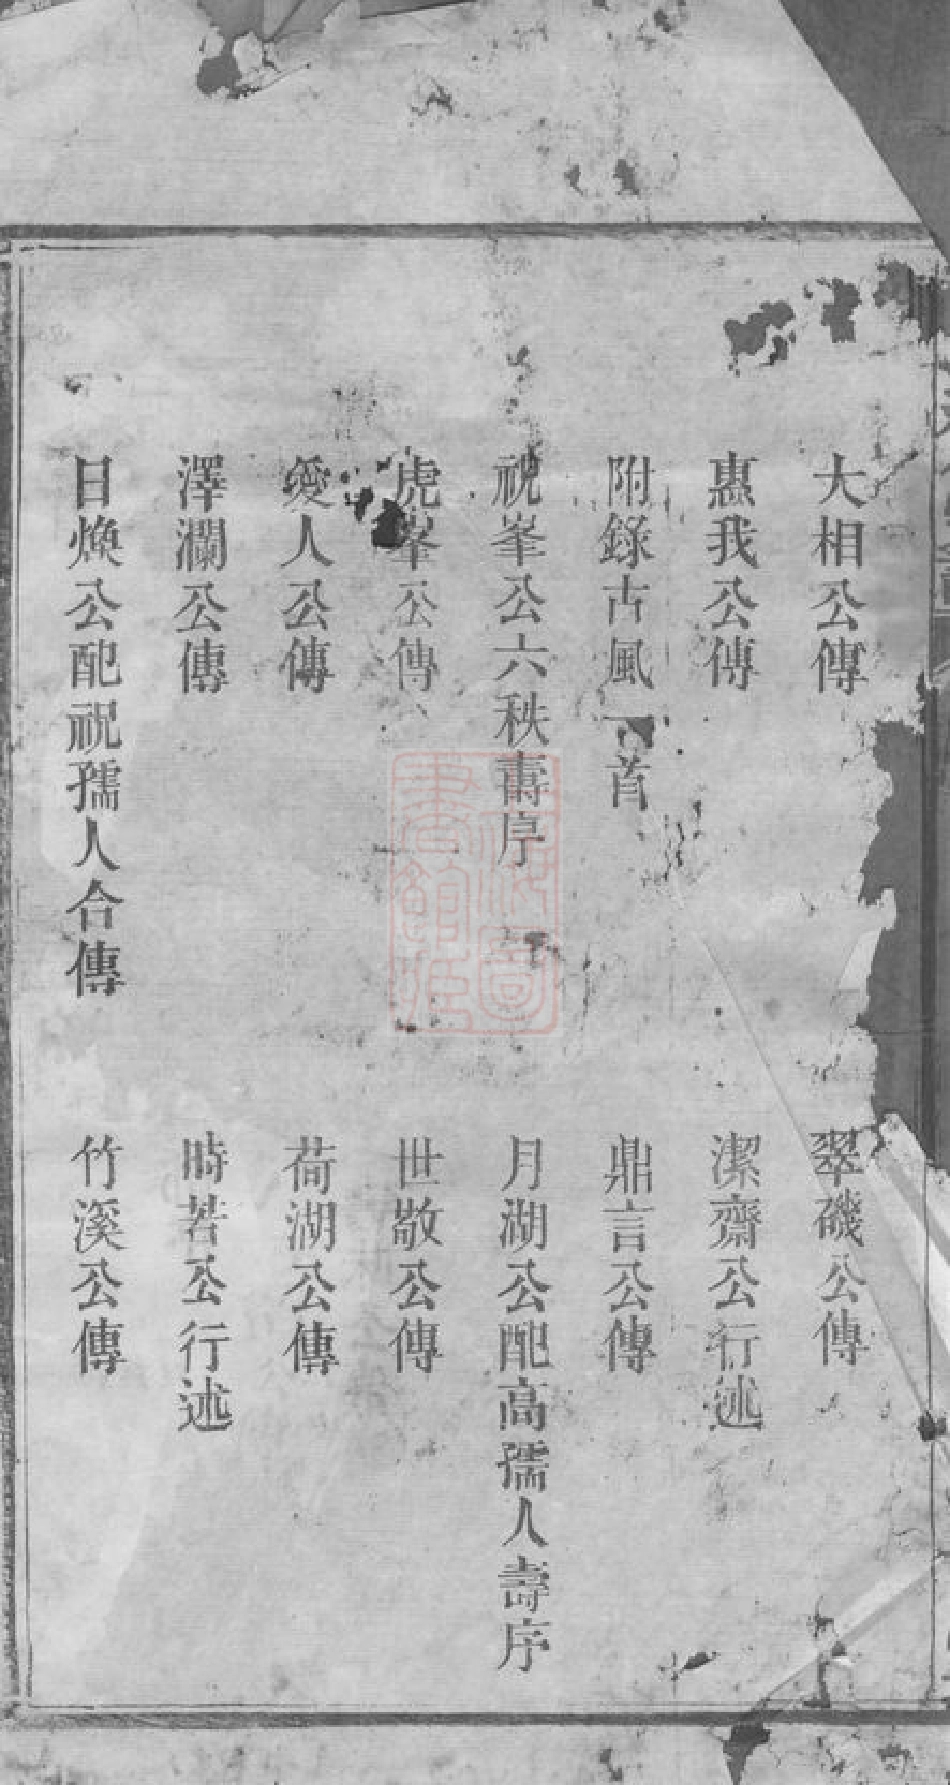 大相公傳
翠磯公傳
惠我公傳
潔齋公行述
附錄古風一首
鼎言公傳
祝峯公六秩壽序
月湖公配高孺人壽序
虎峯公傳
世敬公傳
愛人公傳
荷湖公傳
澤瀾公傳
時若公行述
日煥公配祝孺人合傳
竹溪公傳